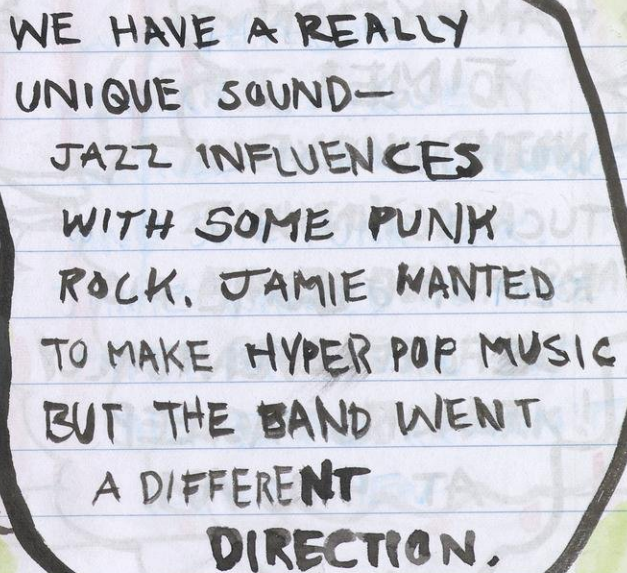 WE HAVE A REALLY
UNIQUE SOUND—
JAZZ INFLUENCES
WITH SOME PUNK
ROCK. JAMIE WANTED
TO MAKE HYPER POP MUSIC
BUT THE BAND WENT
A DIFFERENT
DIRECTION.